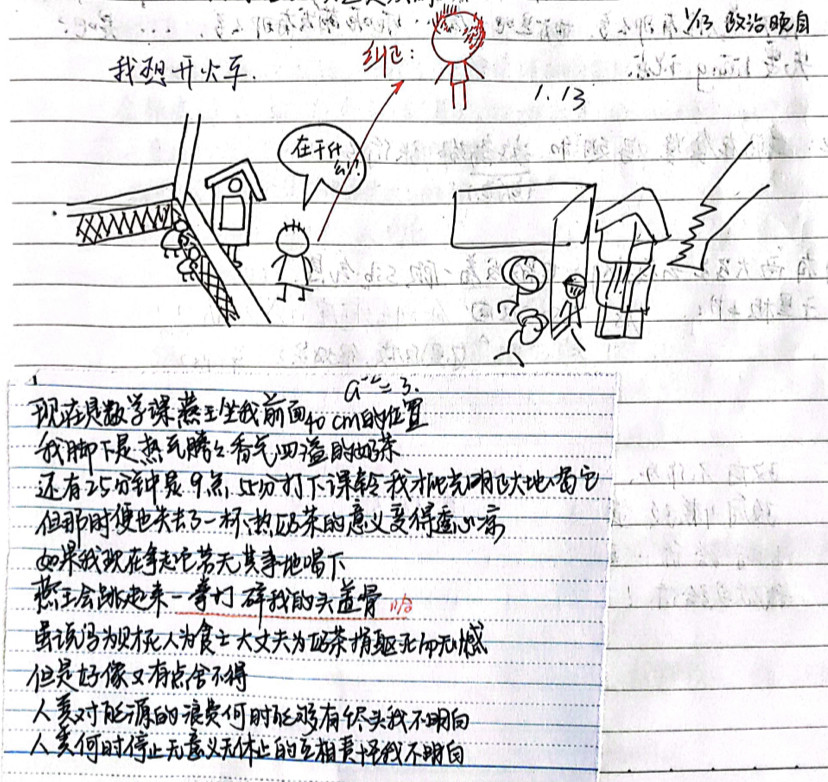 1/13 政治晚自
我想开火车.
纠正:
1.13
在干什么?
a⁻²=3.
现在是数学课燕王坐我前面40cm的位置
我脚下是热气腾々香气四溢的奶茶
还有25分钟是9点55分打下课铃我才能光明正大地喝它
但那时便也失去了一杯热奶茶的意义变得虚心病
如果我现在拿起它若无其事地喝下
燕王会跳起来一拳打碎我的头盖骨 哈
虽说鸟为财死人为食亡大丈夫为奶茶捐躯死而无憾
但是好像又有点舍不得
人类对能源的浪费何时能够有尽头我不明白
人类何时停止无意义无休止的互相责怪我不明白